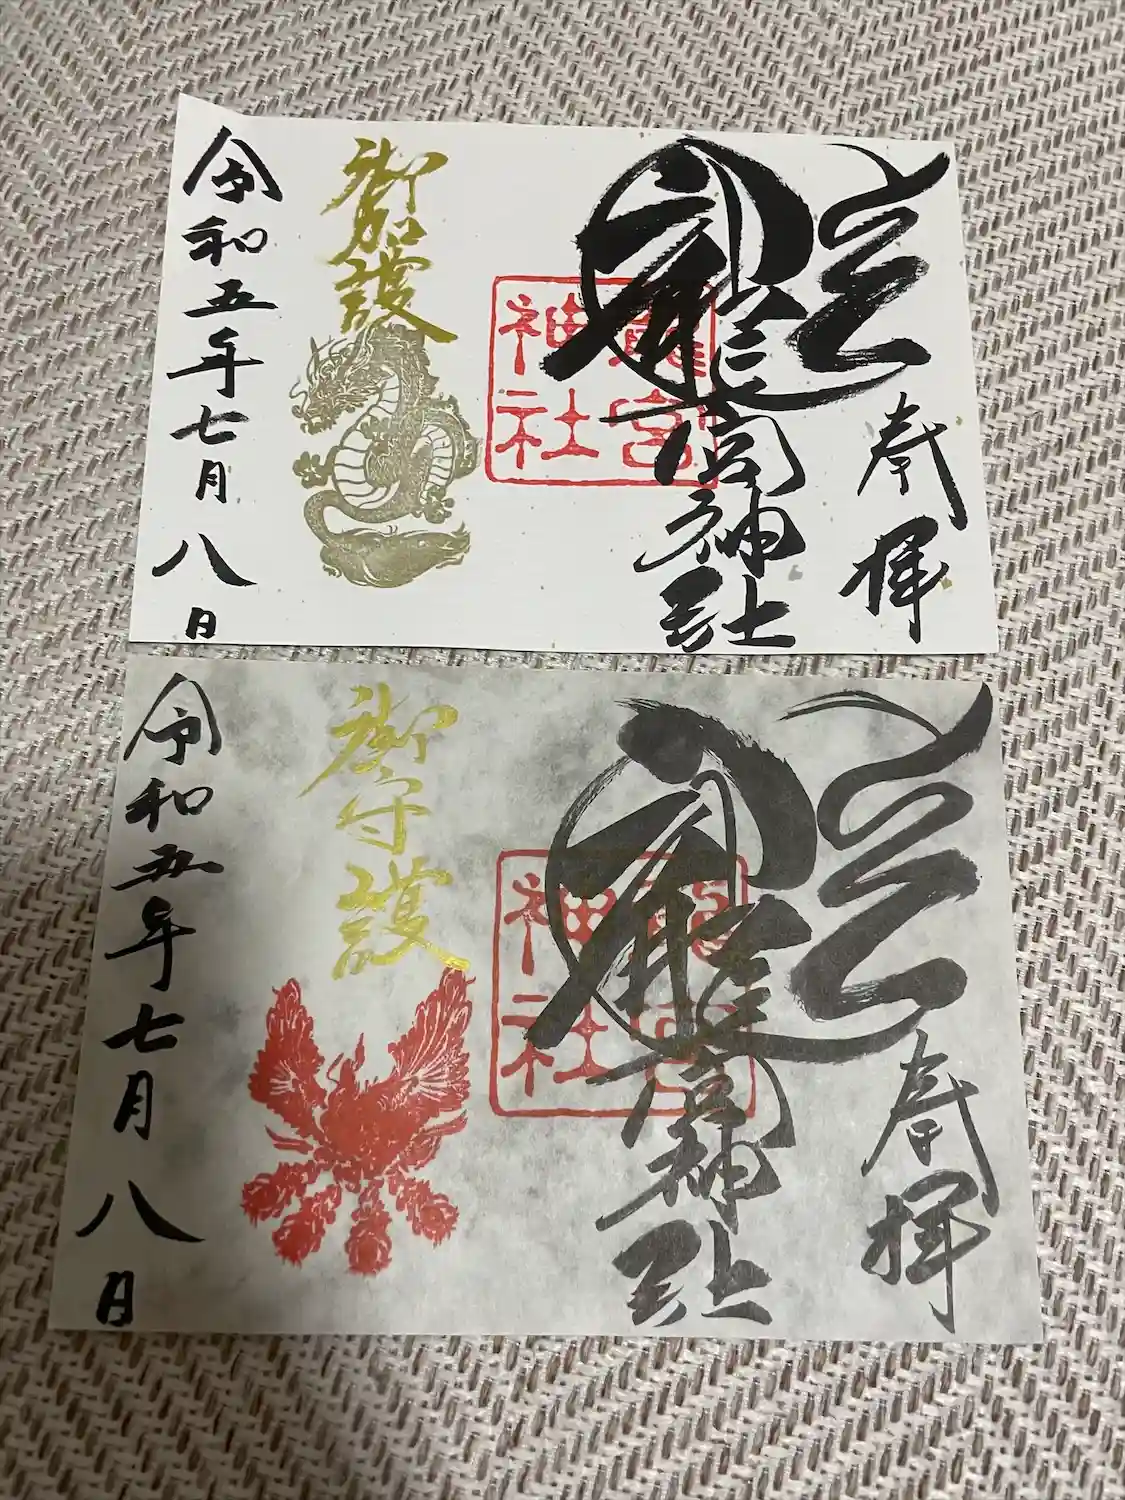 奉拝
龍宮神社
龍宮
神社
御加護
令和五年七月八日
奉拝
龍宮神社
龍宮
神社
御守護
令和五年七月八日